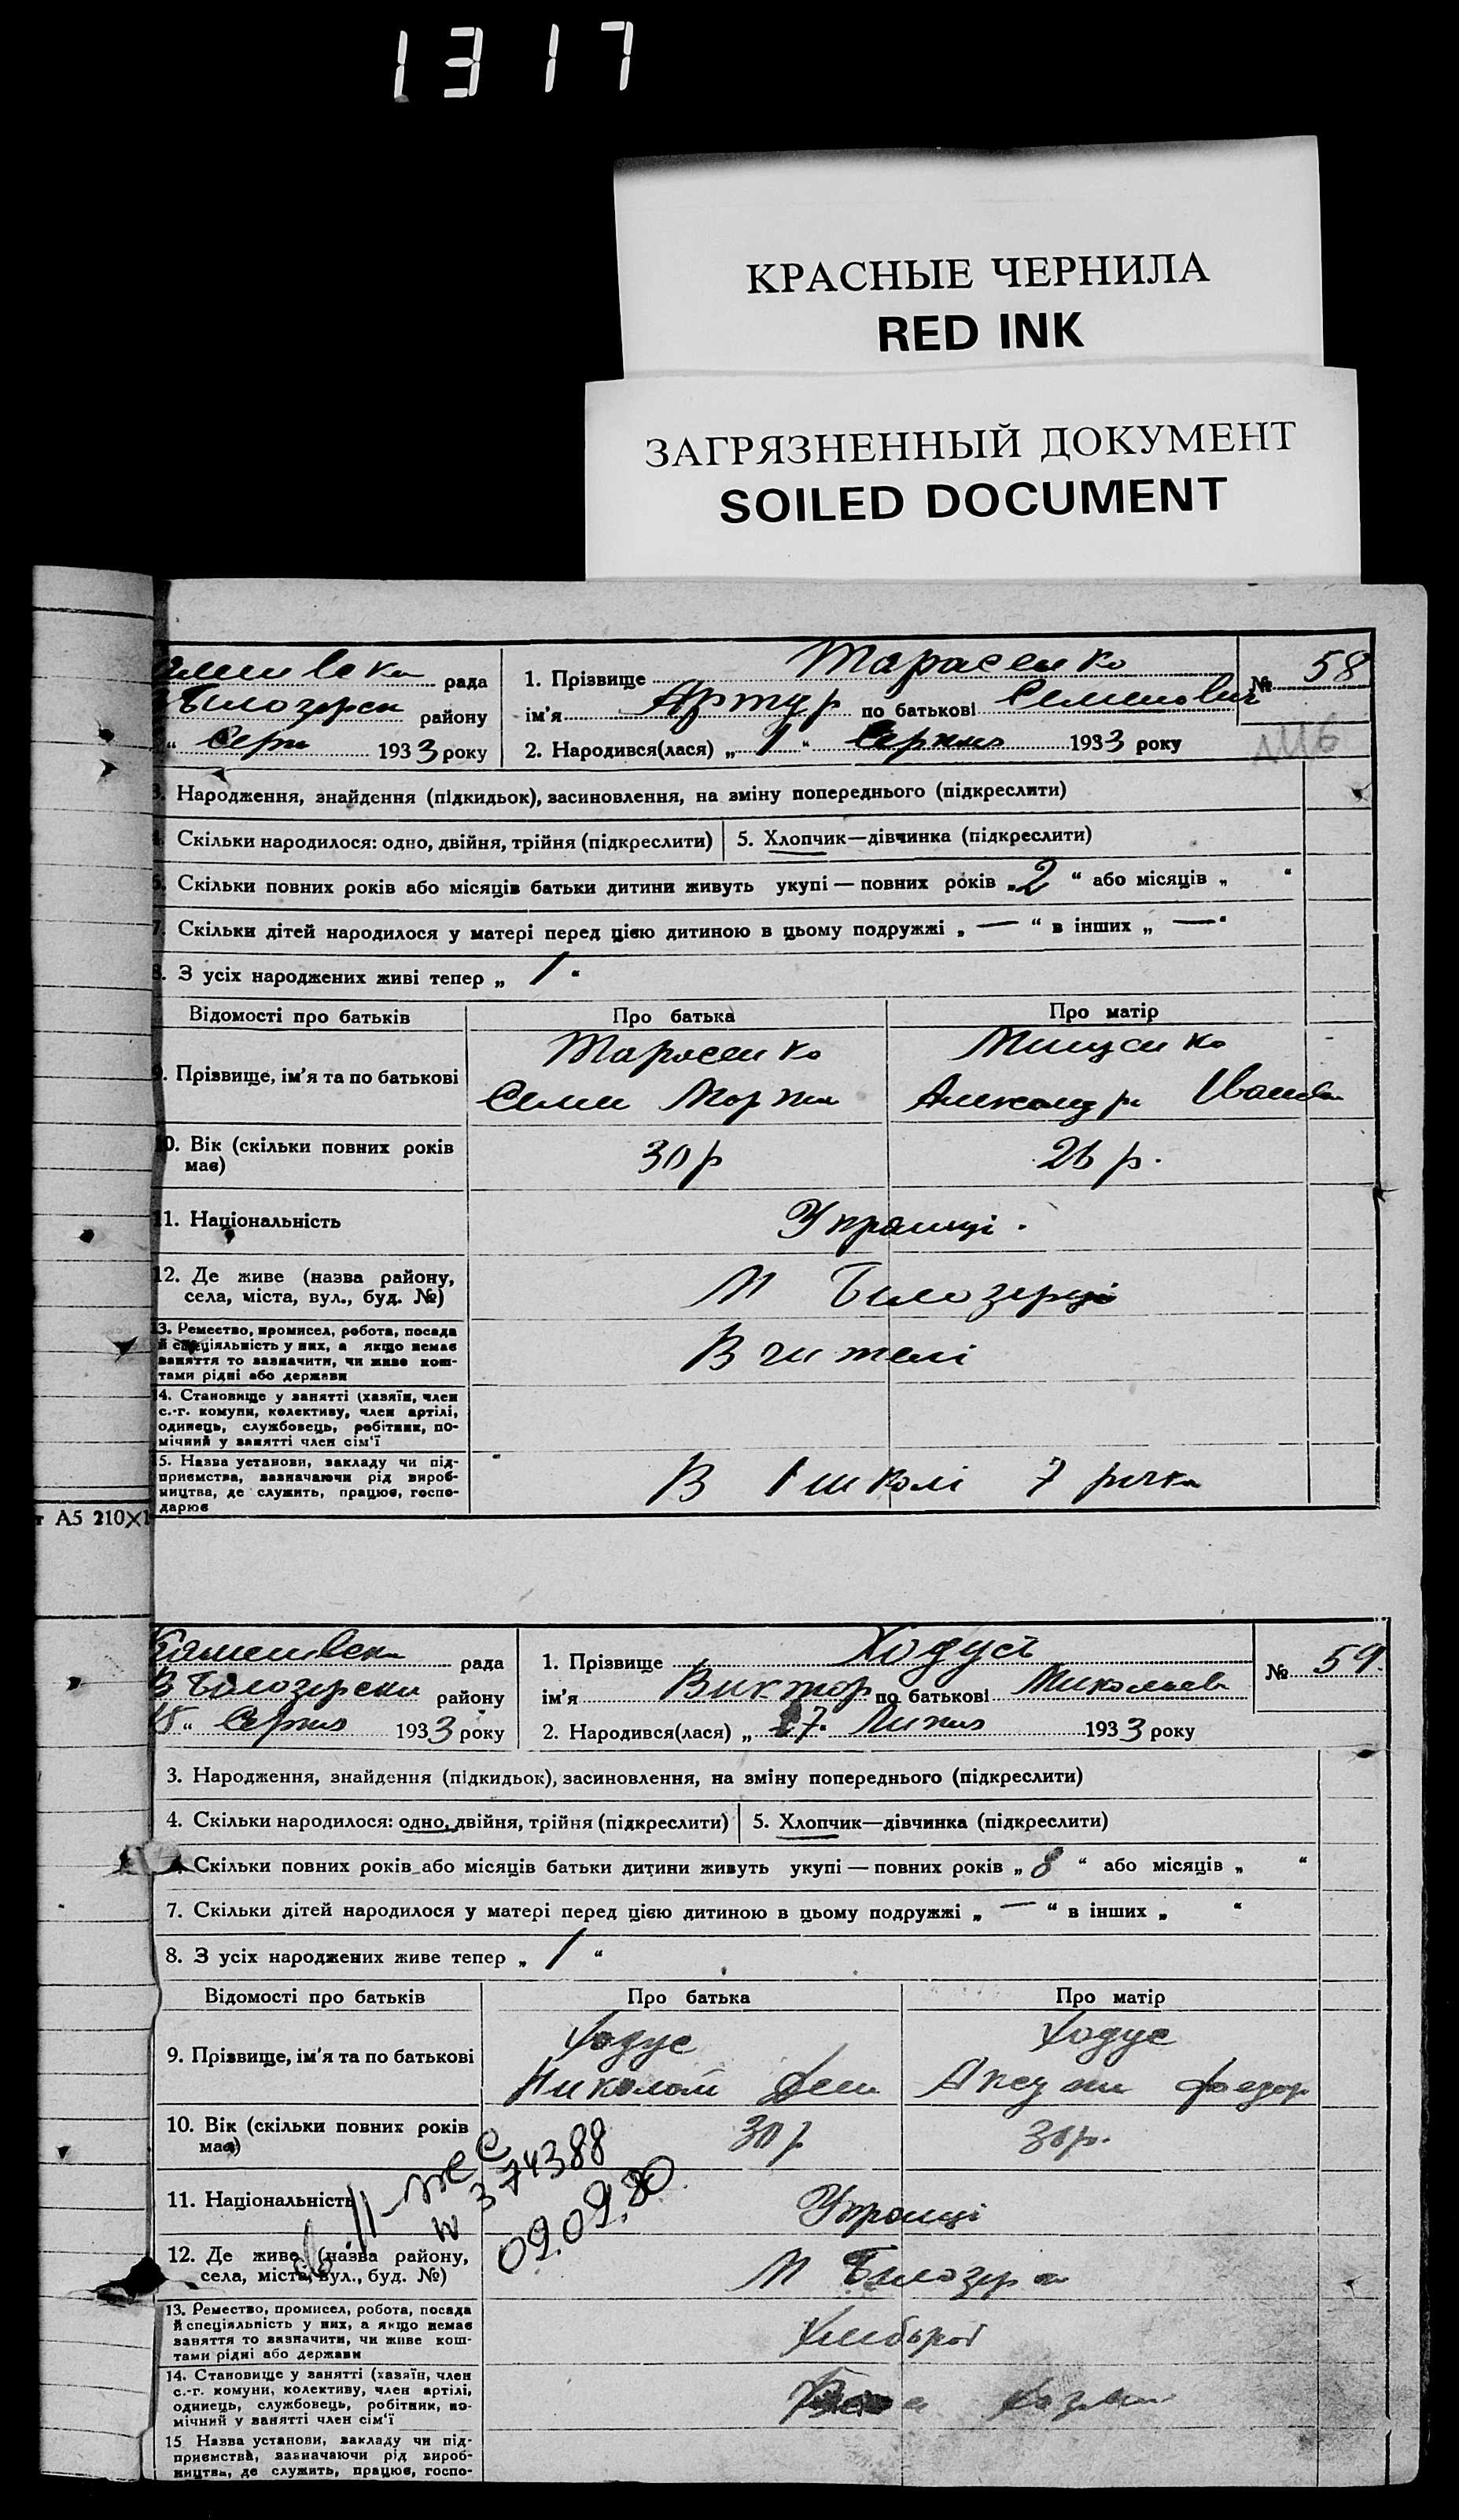 1317
КРАСНЫЕ ЧЕРНИЛА
RED INK
ЗАГРЯЗНЕННЫЙ ДОКУМЕНТ
SOILED DOCUMENT
рада
району
" Серп 1933 року
1. Прізвище Тарасенко
ім'я Артур по батькові Семенович
2. Народився(лася) „ 1 “ Серпня 1933 року
№ 58
3. Народження, знайдення (підкидьок), засиновлення, на зміну попереднього (підкреслити)
4. Скільки народилося: одно, двійня, трійня (підкреслити) 5. Хлопчик—дівчинка (підкреслити)
6. Скільки повних років або місяців батьки дитини живуть укупі — повних років „ 2 “ або місяців „ “
7. Скільки дітей народилося у матері перед цією дитиною в цьому подружжі „ — “ в інших „ — “
8. З усіх народжених живі тепер „ 1 “
Відомості про батьків Про батька Про матір
9. Прізвище, ім'я та по батькові
Тарасенко
Семен
Іванівна
10. Вік (скільки повних років має)
30 р
26 р.
11. Національність
Українці.
12. Де живе (назва району,
села, міста, вул., буд. №)
М Білозерці
13. Ремество, промисел, робота, посада
й спеціяльність у них, а якщо немає
заняття то зазначити, чи живе кош-
тами рідні або держави
Вчителі
14. Становище у занятті (хазяїн, член
с.-г. комуни, колективу, член артілі,
одинець, службовець, робітник, по-
мічний у занятті член сім'ї
15. Назва установи, закладу чи під-
приємства, зазначаючи рід вироб-
ництва, де служить, працює, госпо-
дарює
В школі 7 річка
А5 210×1
рада
В Білозерски району
15 " Серпня 1933 року
1. Прізвище Ходусь
ім'я Виктор по батькові Миколаєв
2. Народився(лася) „ 27. Липня 1933 року
№ 59.
3. Народження, знайдення (підкидьок), засиновлення, на зміну попереднього (підкреслити)
4. Скільки народилося: одно, двійня, трійня (підкреслити) 5. Хлопчик—дівчинка (підкреслити)
Скільки повних років або місяців батьки дитини живуть укупі — повних років „ 8 “ або місяців „ “
7. Скільки дітей народилося у матері перед цією дитиною в цьому подружжі „ — “ в інших „ “
8. З усіх народжених живе тепер „ 1 “
Відомості про батьків Про батька Про матір
9. Прізвище, ім'я та по батькові
Ходус
Николай
Ходус
Федор
10. Вік (скільки повних років
має)
30 р
30 р.
374388
09.09.80
11. Національність
Українці
12. Де живе (назва району,
села, міста, вул., буд. №)
М Білозерка
13. Ремество, промисел, робота, посада
й спеціяльність у них, а якщо немає
заняття то зазначити, чи живе кош-
тами рідні або держави
Хлибороб
14. Становище у занятті (хазяїн, член
с.-г. комуни, колективу, член артілі,
одинець, службовець, робітник, по-
мічний у занятті член сім'ї
15. Назва установи, закладу чи під-
приємства, зазначаючи рід вироб-
ництва, де служить, працює, госпо-